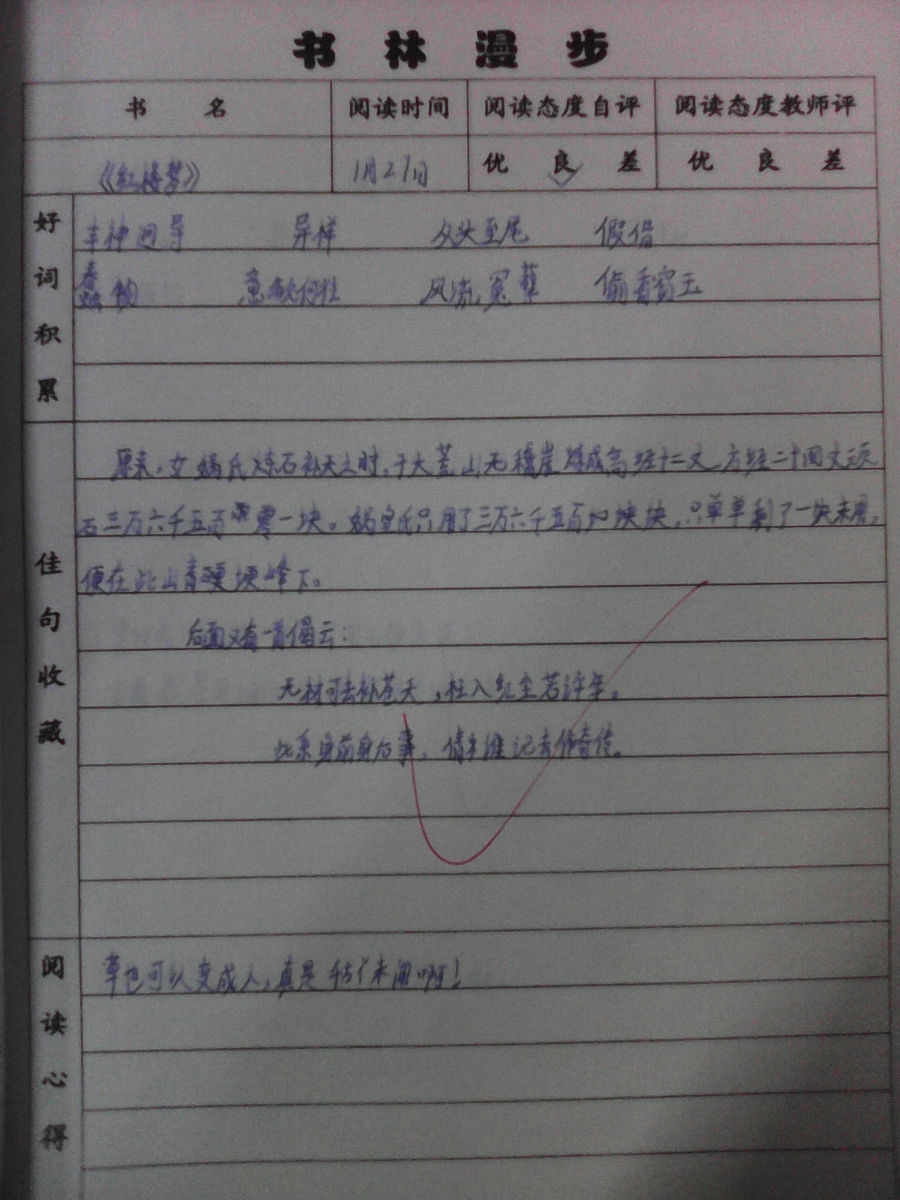 书林漫步
书名 阅读时间 阅读态度自评 阅读态度教师评
《红楼梦》 1月27日 优 良 差 优 良 差
好词积累
丰神迥异 异样 从头至尾 假借
蠢物 风流冤孽 偷香窃玉
佳句收藏
原来,女娲氏炼石补天之时,于大荒山无稽崖炼成高经十二丈,方经二十四丈顽
石三万六千五百零一块。娲皇氏只用了三万六千五百块,只单单剩了一块未用,
便在此山青埂峰下。
后面又有一首偈云:
无材可去补苍天,枉入红尘若许年。
此系身前身后事,倩谁记去作奇传。
阅读心得
草也可以变成人,真是千古未闻啊!